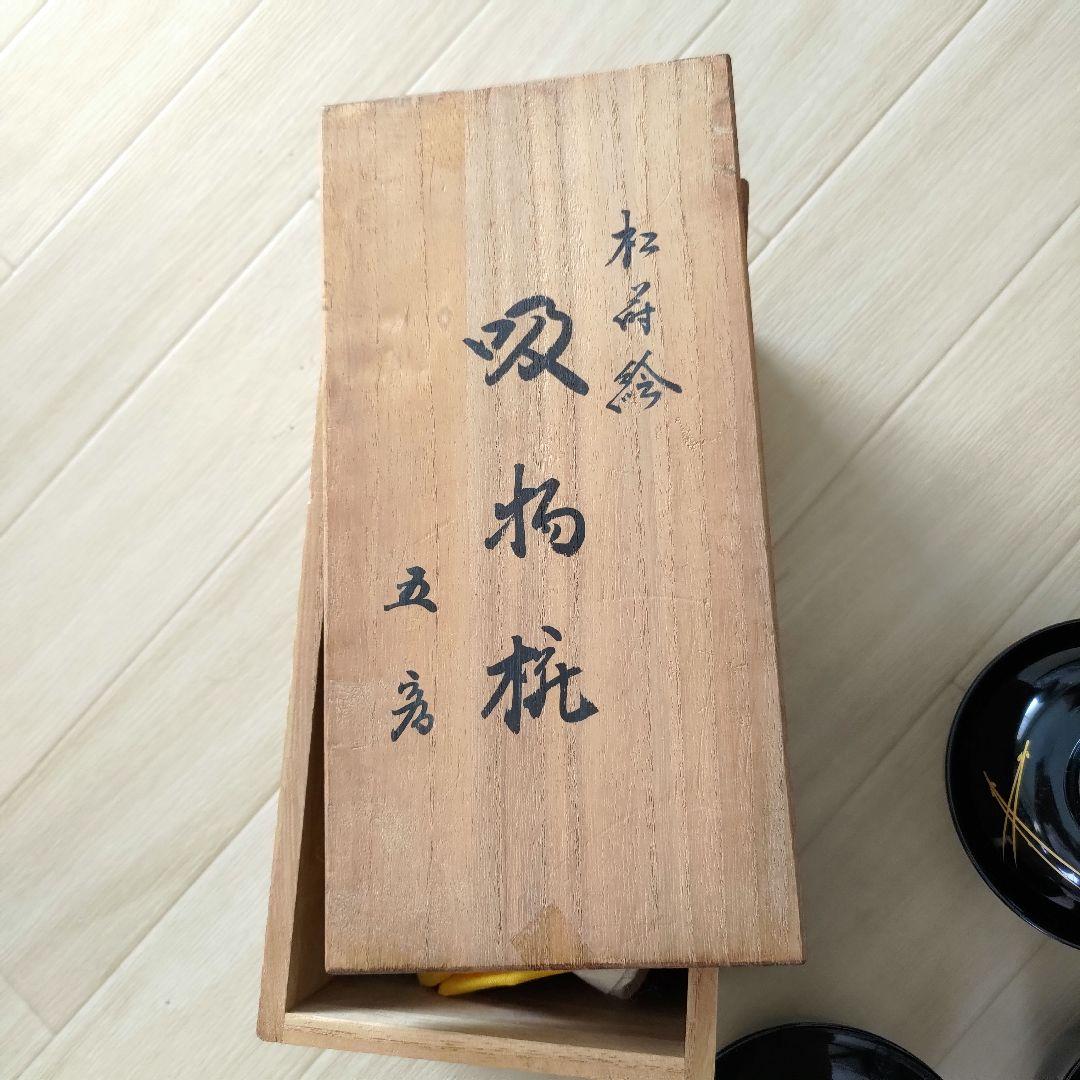 松蒔絵
吸物椀
五客